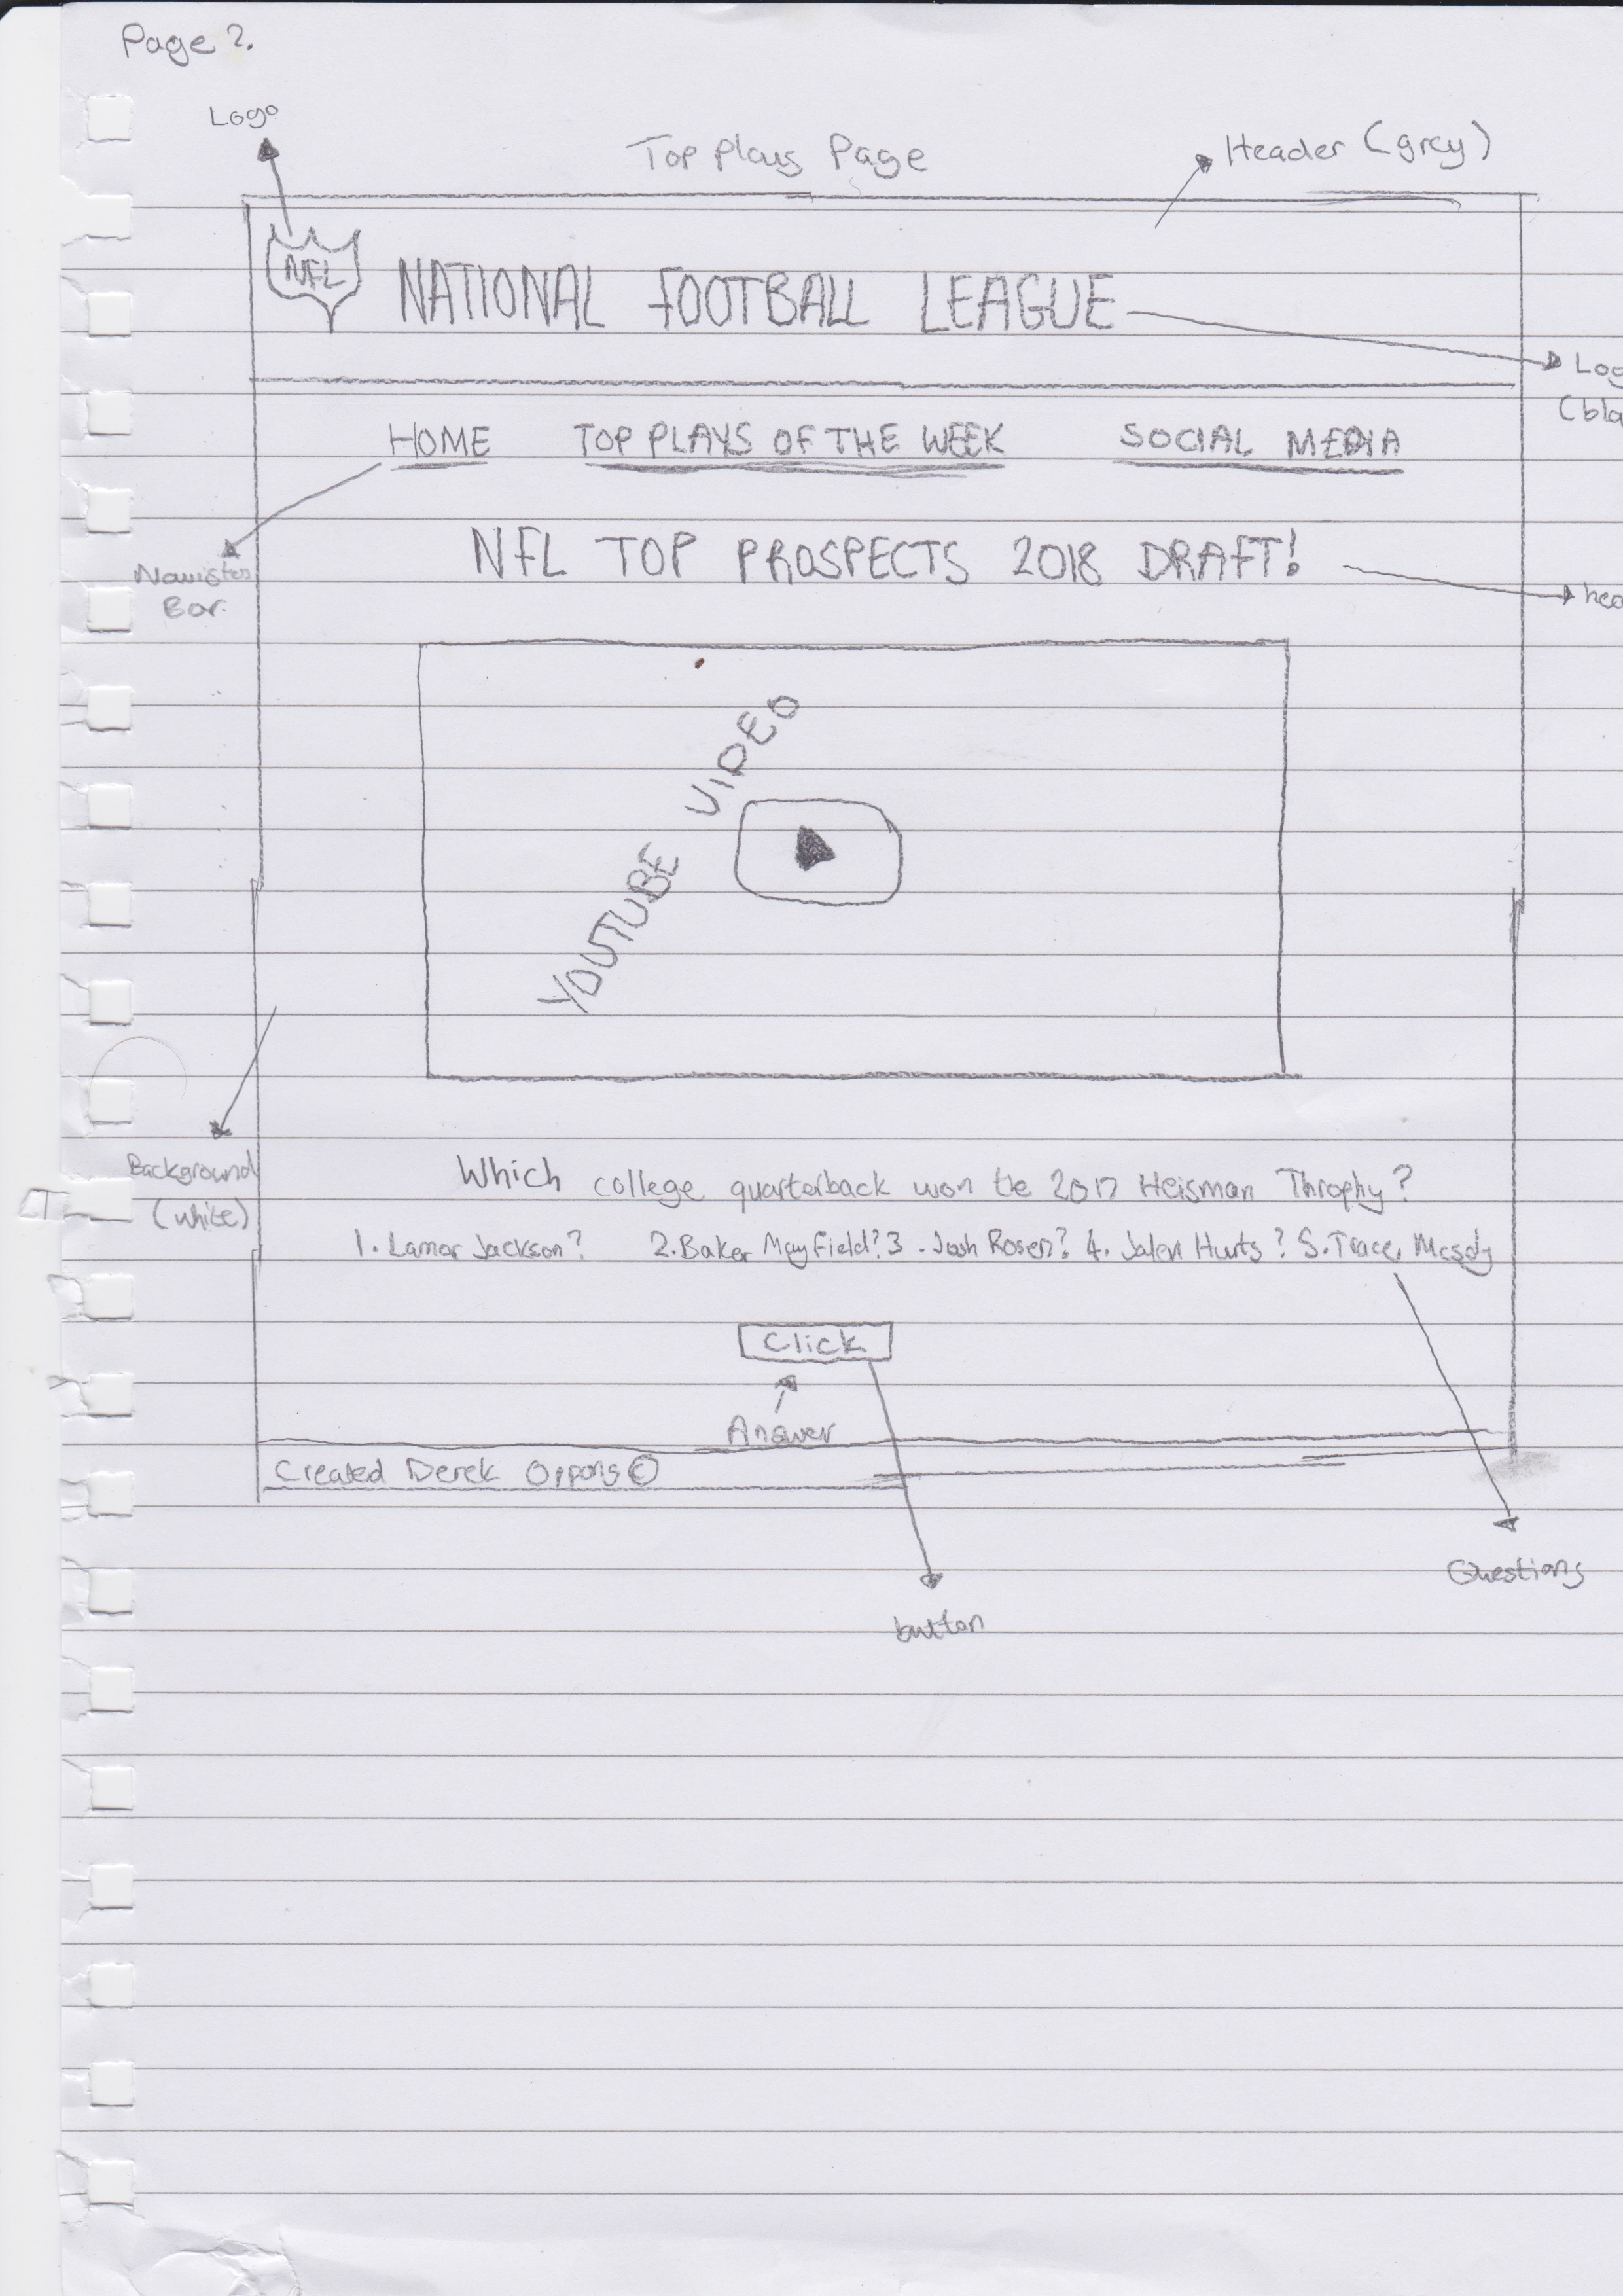 Page 2.
Logo
Top Plays Page
Header (grey)
NFL
NATIONAL FOOTBALL LEAGUE
Log
(bla
HOME TOP PLAYS OF THE WEEK SOCIAL MEDIA
NFL TOP PROSPECTS 2018 DRAFT!
Bar.
hea
YOUTUBE VIDEO
Background
(white)
Which college quarterback won the 2017 Heisman Throphy?
1. Lamar Jackson? 2. Baker Mayfield? 3. Josh Rosen? 4. Jalen Hurts? 5. Trace
Click
Answer
Created Derek Oppong ©
Questions
button